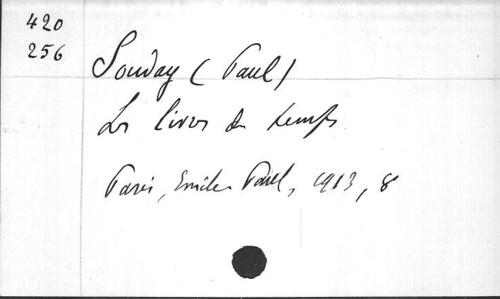 420
256
Souday (Paul)
Les livres du temps
Paris, Emile-Paul, 1913, 8°